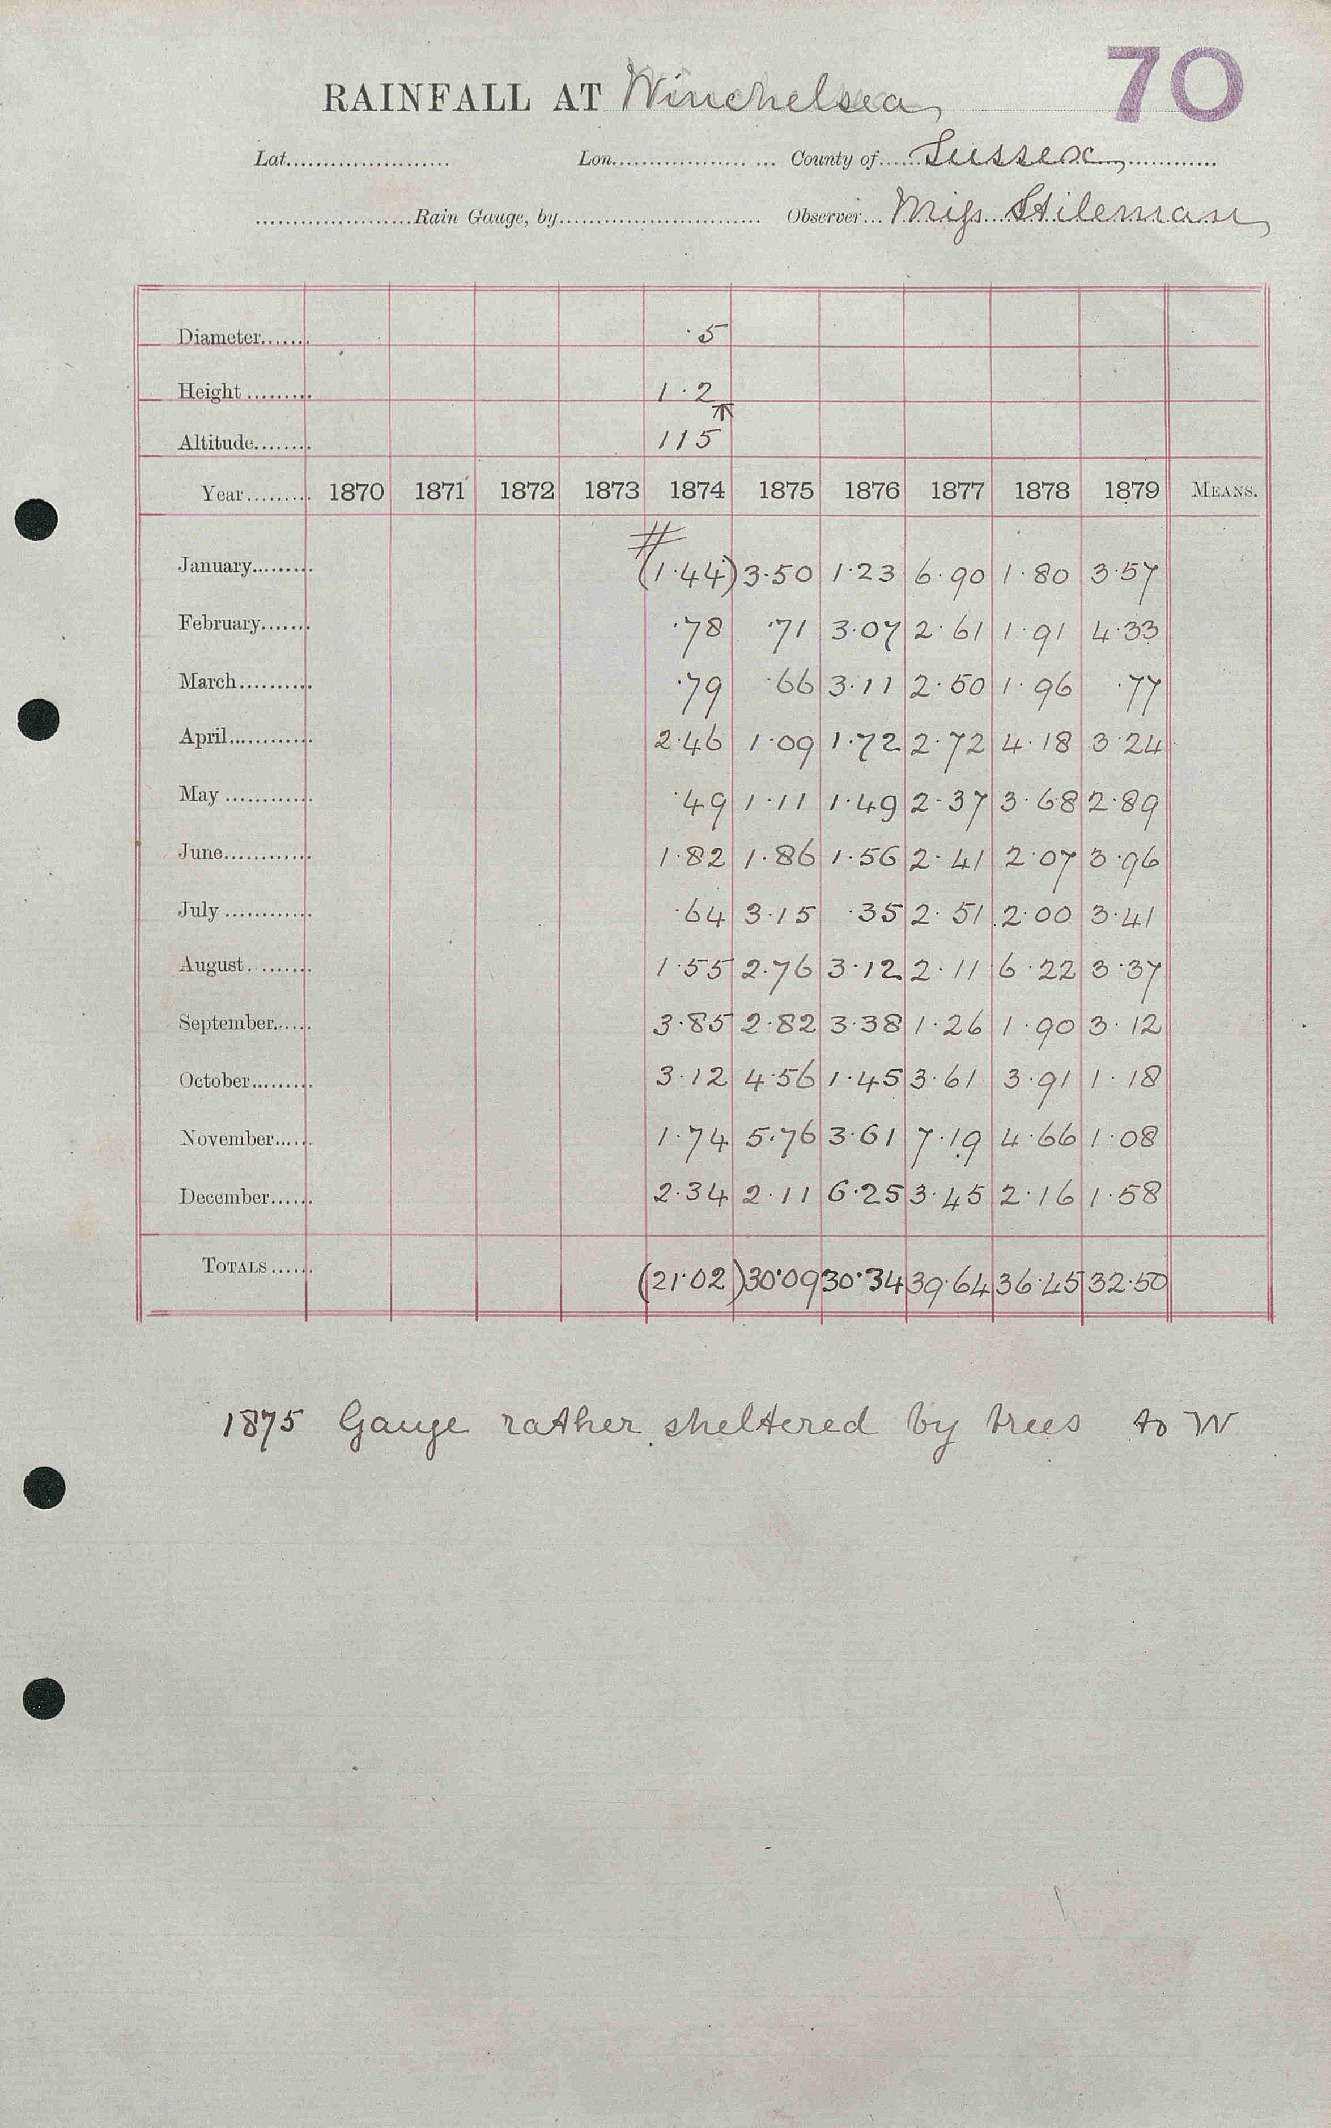 70
RAINFALL AT Winchelsea,
Lat. Lon. County of Sussex,
Rain Gauge, by Observer Miss Stileman,
Diameter ·5
Height 1·2
Altitude 115
Year 1870 1871 1872 1873 1874 1875 1876 1877 1878 1879 MEANS.
#
January (1·44) 3·50 1·23 6·90 1·80 3·57
February ·78 ·71 3·07 2·61 1·91 4·33
March ·79 ·66 3·11 2·50 1·96 ·77
April 2·46 1·09 1·72 2·72 4·18 3·24
May ·49 1·11 1·49 2·37 3·68 2·89
June 1·82 1·86 1·56 2·41 2·07 3·96
July ·64 3·15 ·35 2·51 2·00 3·41
August 1·55 2·76 3·12 2·11 6·22 3·37
September 3·85 2·82 3·38 1·26 1·90 3·12
October 3·12 4·56 1·45 3·61 3·91 1·18
November 1·74 5·76 3·61 7·19 4·66 1·08
December 2·34 2·11 6·25 3·45 2·16 1·58
TOTALS (21·02) 30·09 30·34 39·64 36·45 32·50
1875 Gauge rather sheltered by trees to W